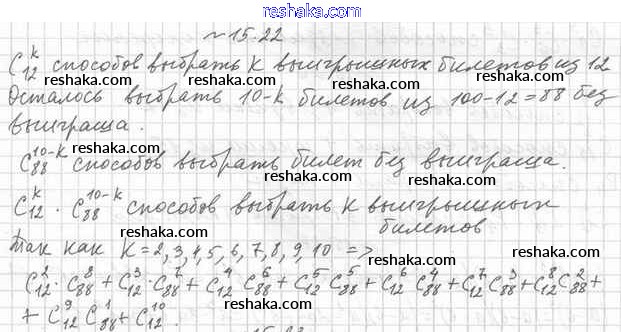 reshaka.ru
№15.22
C₁₂ᵏ способов выбрать k выигрышных билетов из 12
reshaka.ru reshaka.ru
Осталось выбрать 10-k билетов из 100-12=88 без
выиграша.
reshaka.ru reshaka.ru
C₈₈¹⁰⁻ᵏ способов выбрать билет без выиграша.
reshaka.ru reshaka.ru
C₁₂ᵏ · C₈₈¹⁰⁻ᵏ способов выбрать k выигрышных
билетов
reshaka.ru reshaka.ru
Так как K=2,3,4,5,6,7,8,9,10 =>
reshaka.ru
C₁₂²·C₈₈⁸+C₁₂³·C₈₈⁷+C₁₂⁴C₈₈⁶+C₁₂⁵C₈₈⁵+C₁₂⁶C₈₈⁴+C₁₂⁷C₈₈³+C₁₂⁸C₈₈²+
+C₁₂⁹C₈₈¹+C₁₂¹⁰.
reshaka.ru reshaka.ru